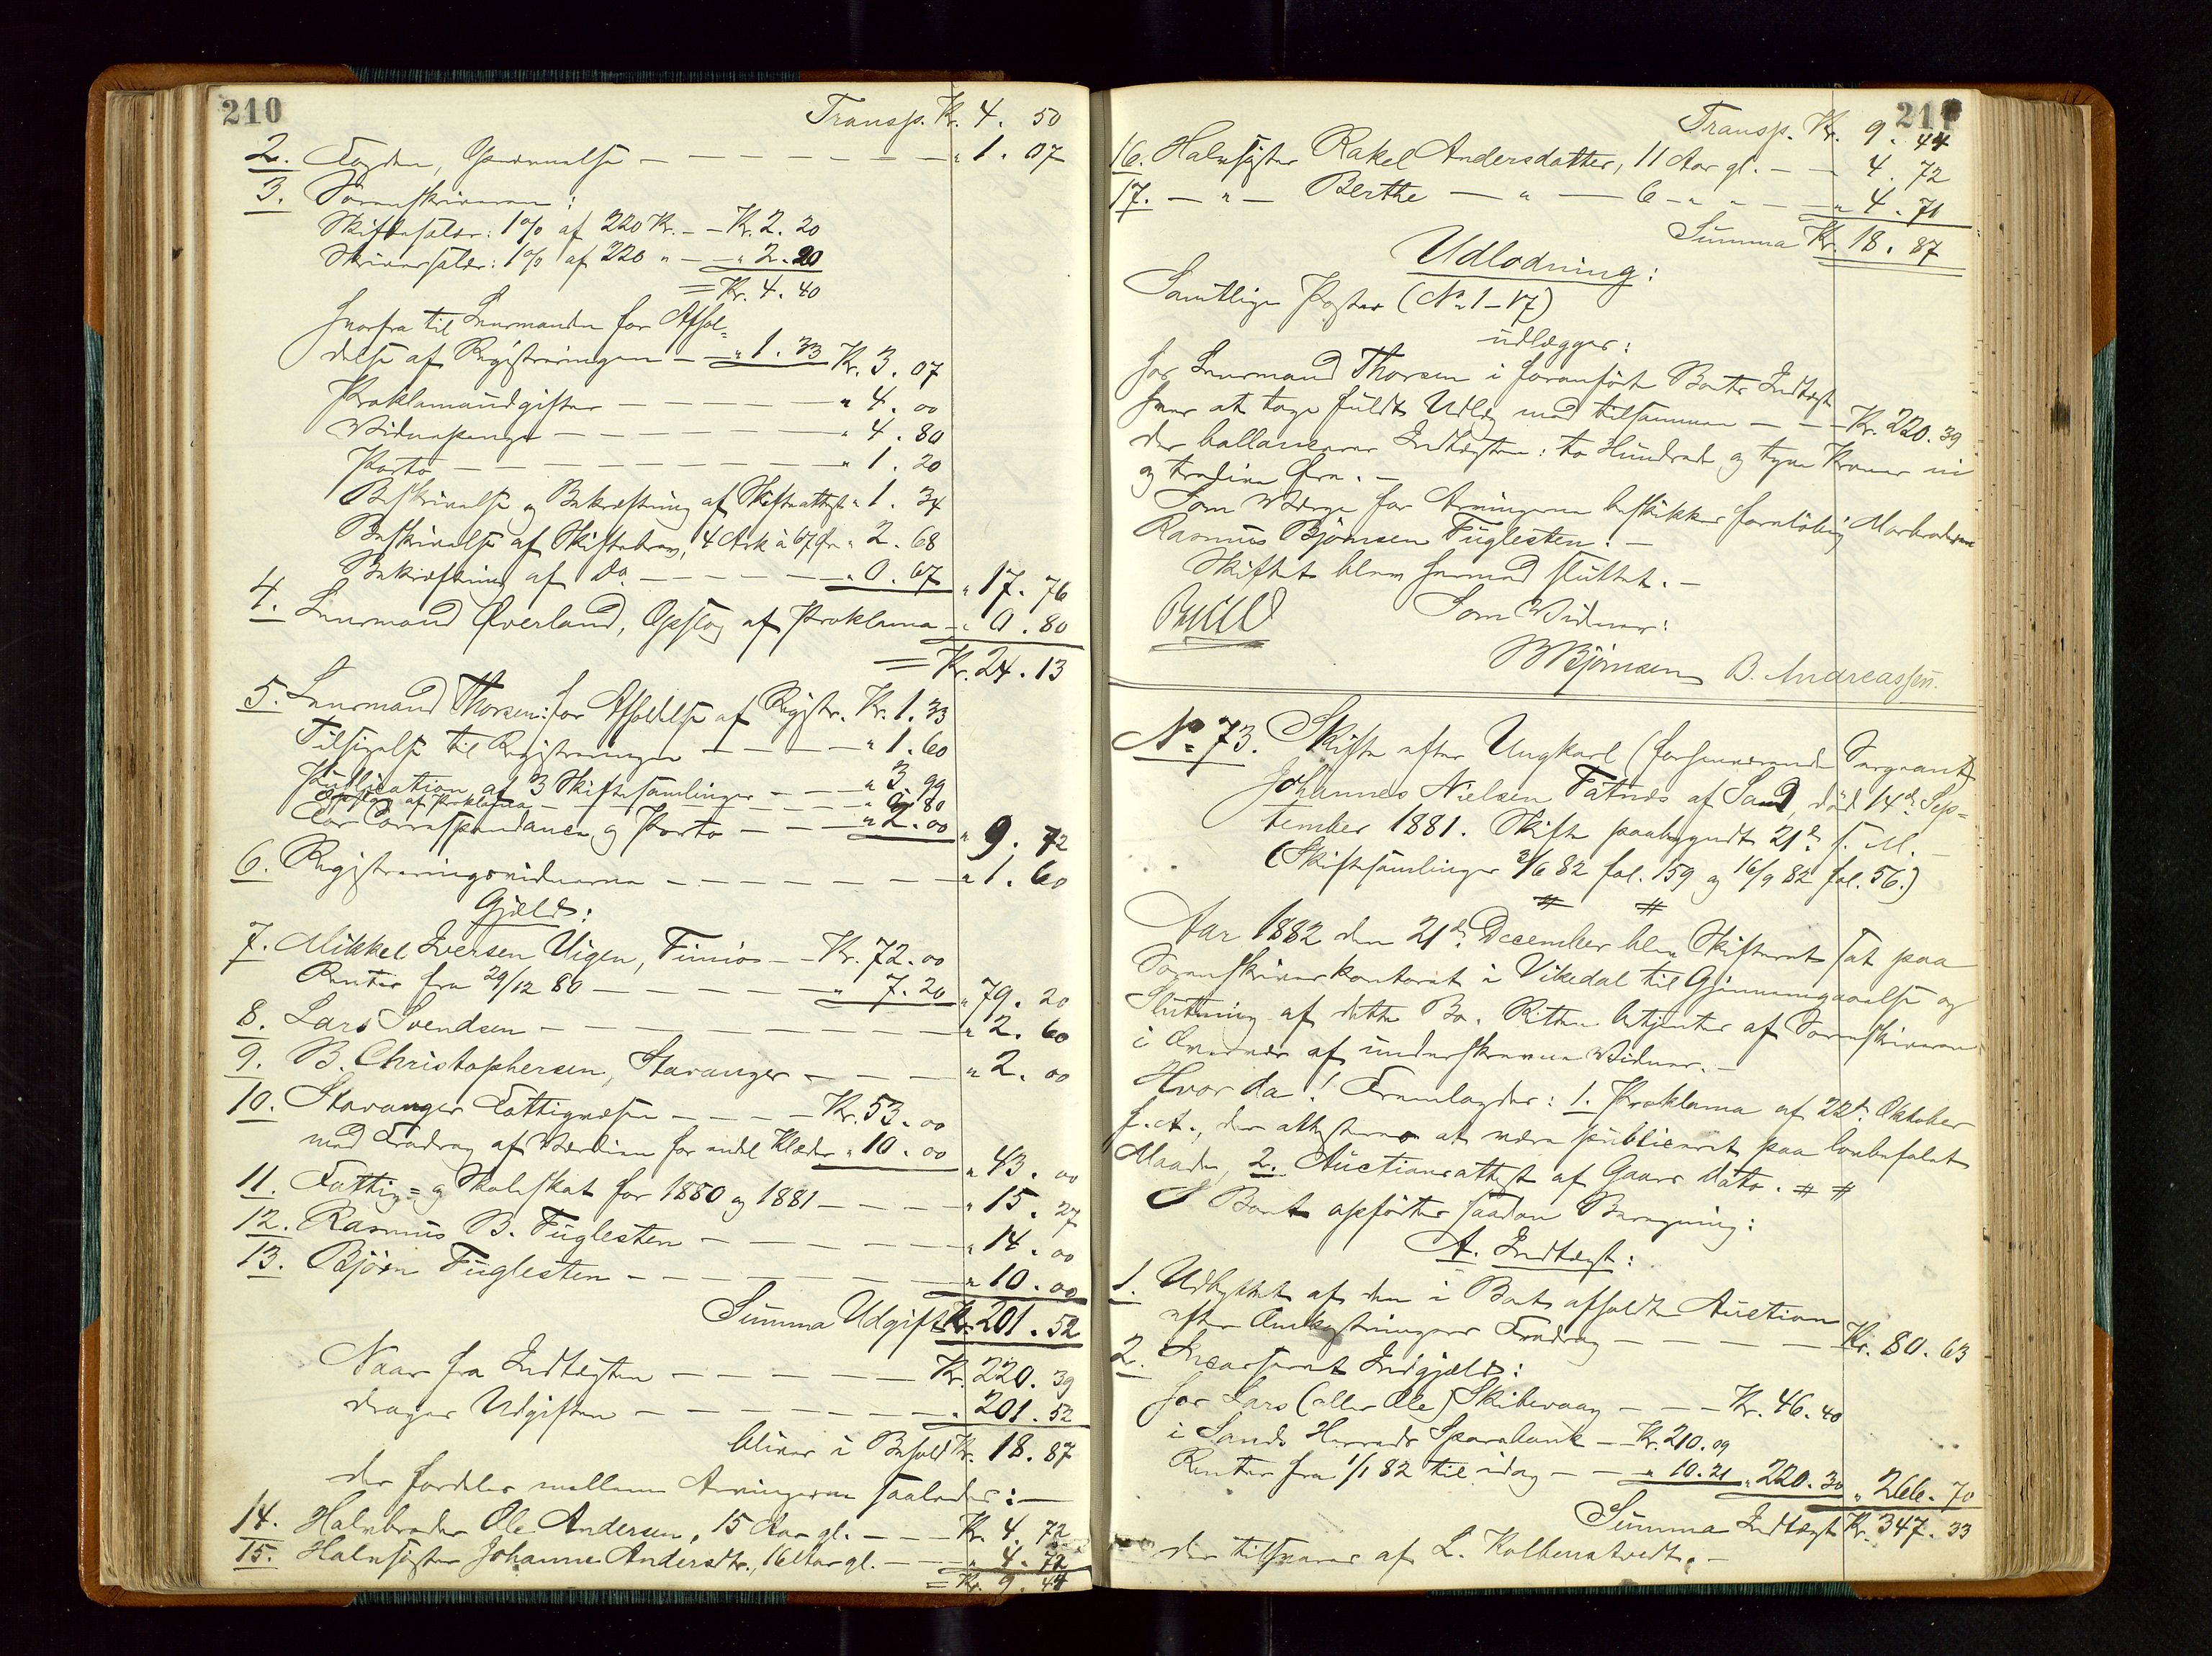 210
Transp. Kr. 4. 50
2. Fogden, Opnævnelse — " 1. 07
3. Sorenskriveren:
Skiftesalær: 1% af 220 Kr. — Kr. 2. 20
Skriversalær: 1% af 220 " — " 2. 20
= Kr. 4. 40
herfra til Lensmanden for Afhol-
delse af Registreringen — " 1. 33 Kr. 3. 07
Proklamaudgifter — " 4. 00
Vidnepenge — " 4. 80
Porto — " 1. 20
Beskrivelse og Bekræftning af Skifteattest " 1. 34
Beskrivelse af Skiftebrev, 4 Ark à 67 Øre " 2. 68
Bekræftning af do — " 0. 67 " 17. 76
4. Lensmand Øverland, Opslag af Proklama — " 0. 80
= Kr. 24. 13
5. Lensmand Thorsen: for Afholdelse af Registr. Kr. 1. 33
Tilsigelse til Registreringen — " 1. 60
Publication af 3 Skiftesamlinger — " 3. 99
Opslag af Proklama — " 0. 80
For Correspondance og Porto — " 2. 00 " 9. 72
6. Registreringsvidnerne — " 1. 60
Gjæld:
7. Mikkel Iversen Vigen, Finnøs — Kr. 72. 00
Renter fra 29/12 80 — " 7. 20 " 79. 20
8. Lars Svendsen — " 2. 60
9. B. Christophersen, Stavanger — " 2. 00
10. Stavanger Fattigvæsen — Kr. 53. 00
med Fradrag af Værdien for endel Klæder " 10. 00 " 43. 00
11. Fattig- og Skoleskat for 1880 og 1881 — " 15. 27
12. Rasmus B. Fuglesten — " 14. 00
13. Bjørn Fuglesten — " 10. 00
Summa Udgift Kr. 201. 52
Naar fra Indtægten — Kr. 220. 39
drages Udgiften — " 201. 52
bliver i Behold Kr. 18. 87
der fordeles mellem Arvingerne saaledes: —
14. Halvbroder Ole Andersen, 15 Aar gl. — Kr. 4. 72
15. Halvsøster Johanne Andersdtr., 16 Aar gl. — " 4. 72
= Kr. 9. 44
211
Transp. Kr. 9. 44
16. Halvsøster Rakel Andersdatter, 11 Aar gl. — 4. 72
17. — " — Berthe — " — 6 — " — " 4. 71
Summa Kr. 18. 87
Udlodning:
Samtlige Poster (No 1-17)
udlægges:
hos Lensmand Thorsen i foranførte Boets Indtægt
hver at tage fuldt Udlæg med tilsammen — Kr. 220. 39
der ballancerer Indtægten: to Hundrede og tyve Kroner ni
og tredive Øre. —
Som Værge for Arvingerne beskikkes foreløbig Morbroderen
Rasmus Bjørnsen Fuglesten. —
Skiftet blev hermed sluttet. —
Som Vidner:
Bjørnsen B. Andreassen.
No 73. Skifte efter Ungkarl (forhenværende Sergeant)
Johannes Nielsen Fatnes af Sand, død 14de Sep-
tember 1881. Skifte paabegyndt 21de s. M. —
(Skiftesamlinger 2/6 82 fol. 159 og 16/9 82 fol. 56.)
Aar 1882 den 21de December blev Skifteret sat paa
Sorenskriverkontoret i Vikedal til Gjennemgaaelse og
Slutning af dette Bo. Retten betjentes af Sorenskriveren
i Overvær af underskrevne Vidner. —
Hvorda! Fremlagdes: 1. Proklama af 22de Oktober
f. A., der attesteres at være publiceret paa lovbefalet
Maade, 2. Auctionsattest af Gaars dato. # #
I Boet opførtes saadan Beregning:
A. Indtægt:
1. Udbyttet af den i Boet afholdte Auction
efter Omkostningers Fradrag — Kr. 80. 63
2. Incasseret Indgjæld:
hos Lars (eller Ole) Skibevaag — Kr. 46. 40
i Sands Herreds Sparebank — Kr. 210. 09
Renter fra 1/1 82 til idag — " 10. 21 " 220. 30 " 266. 70
Summa Indtægt Kr. 347. 33
der tilsvares af L. Kolbenstvedt. —